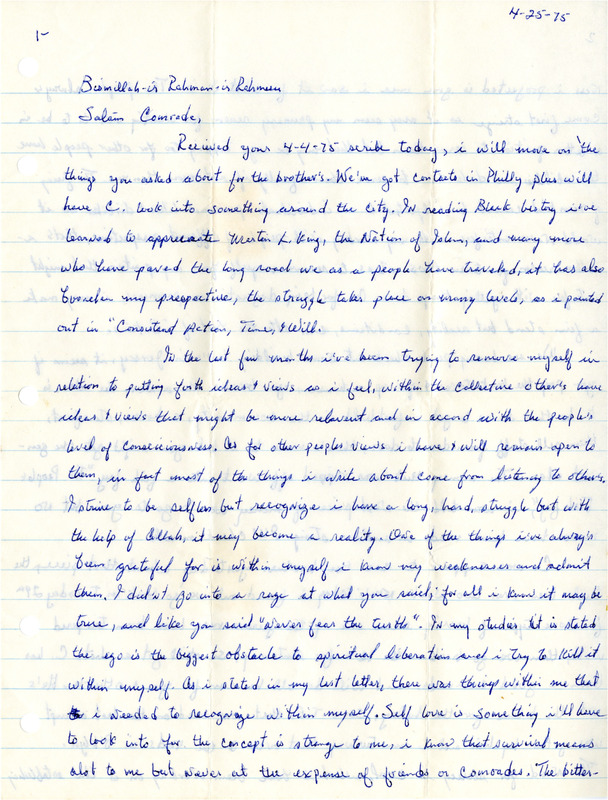 4-25-75
1-
Bismillah-ir Rahman-ir Raheem
Salām Comrade,
Recieved your 4-4-75 scribe today, i will move on the
things you asked about for the brother's. We've got contacts in Philly plus will
have C. look into something around the city. In reading Black history i've
learned to appreceate Martin L. King, the Nation of Islam, and many more
who have paved the long road we as a people have traveled, it has also
broaden my prespective, the struggle takes place on many levels, as i pointed
out in "Consistent Action, Time, & Will.
In the last few months i've been trying to remove myself in
relation to putting forth ideas & views as i feel, within the collective other's have
ideas & views that might be more relevant and in accord with the people's
level of consciousness. As for other peoples views i have & will remain open to
them, in fact most of the things i write about come from listening to other's.
I strive to be selfless but recognize i have a long, hard, struggle but with
the help of Allah, it may become a reality. One of the things i've always
been grateful for is within myself i know my weaknesses and admit
them. I didn't go into a rage at what you said, for all i know it may be
true, and like you said "never fear the truth". In my studies it is stated
the ego is the biggest obstacle to spiritual liberation and i try to kill it
within myself. As i stated in my last letter, there was things within me that
i needed to recognize within myself. Self love is something i'll have
to look into for the concept is strange to me, i know that survival means
alot to me but never at the expense of friends or comrades. The bitter-